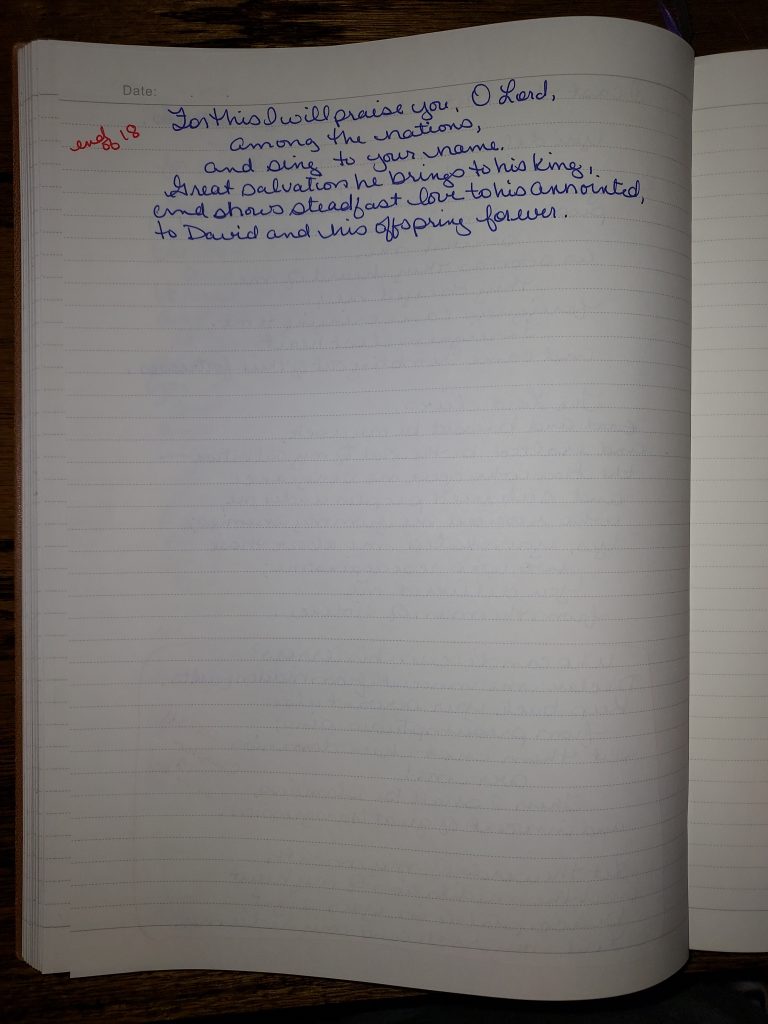 Date:
For this I will praise you, O Lord,
end of 18
among the nations,
and sing to your name.
Great salvation he brings to his king,
and shows steadfast love to his annointed,
to David and his offspring forever.